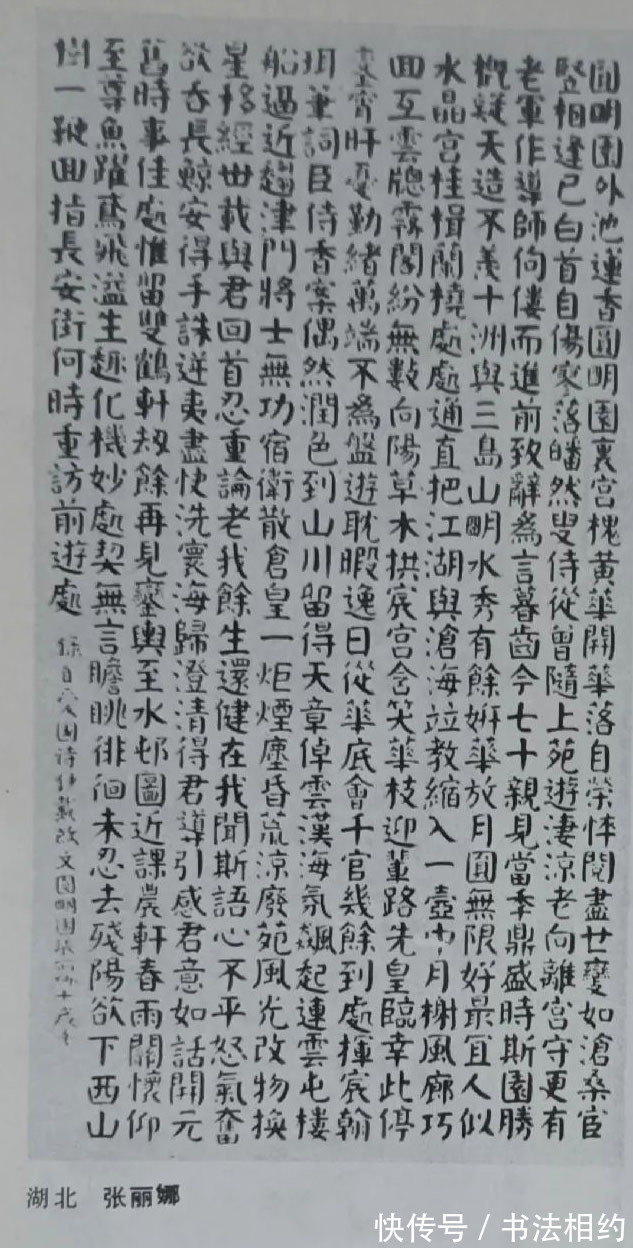 圓明園外池蓮香圓明園裏宮槐黃華開華落自榮悴閱盡世變如滄桑宦
豎相逢已白首自傷零落皤然叟侍從曾隨上苑遊淒涼老向離宮守更有
老軍作導師佝僂而進前致辭為言暮齒今七十親見當年鼎盛時斯園勝
概疑天造不羨十洲與三島山明水秀有餘妍華放月圓無限好最宜人似
水晶宮桂楫蘭橈處處通直把江湖與滄海竝教縮入一壺中月榭風廊巧
回互雲牕霧閣紛無數向陽草木拱宸宮含笑華枝迎輦路先皇臨幸此停
鑾宵旰憂勤緒萬端不為盤遊耽暇逸日從華底會千官幾餘到處揮宸翰
珥筆詞臣侍香案偶然潤色到山川留得天章倬雲漢海氛飆起連雲屯樓
船過近趨津門將士無功宿衛散倉皇一炬煙塵昏荒涼廢苑風光改物換
星移經世載與君回首忍重論老我餘生還健在我聞斯語心不平怒氣奮
欲吞長鯨安得手誅逆夷盡快洗寰海歸澄清得君導引感君意如話開元
舊時事佳處惟留雙鶴軒劫餘再見鑾輿至水邨圖近課農軒春雨關懷仰
至尊魚躍鳶飛溢生趣化機妙處契無言瞻眺徘徊未忍去殘陽欲下西山
樹一鞭回指長安街何時重訪前遊處
錄自 園詩 文圓明園
湖北 张丽娜
快传号 / 书法相约